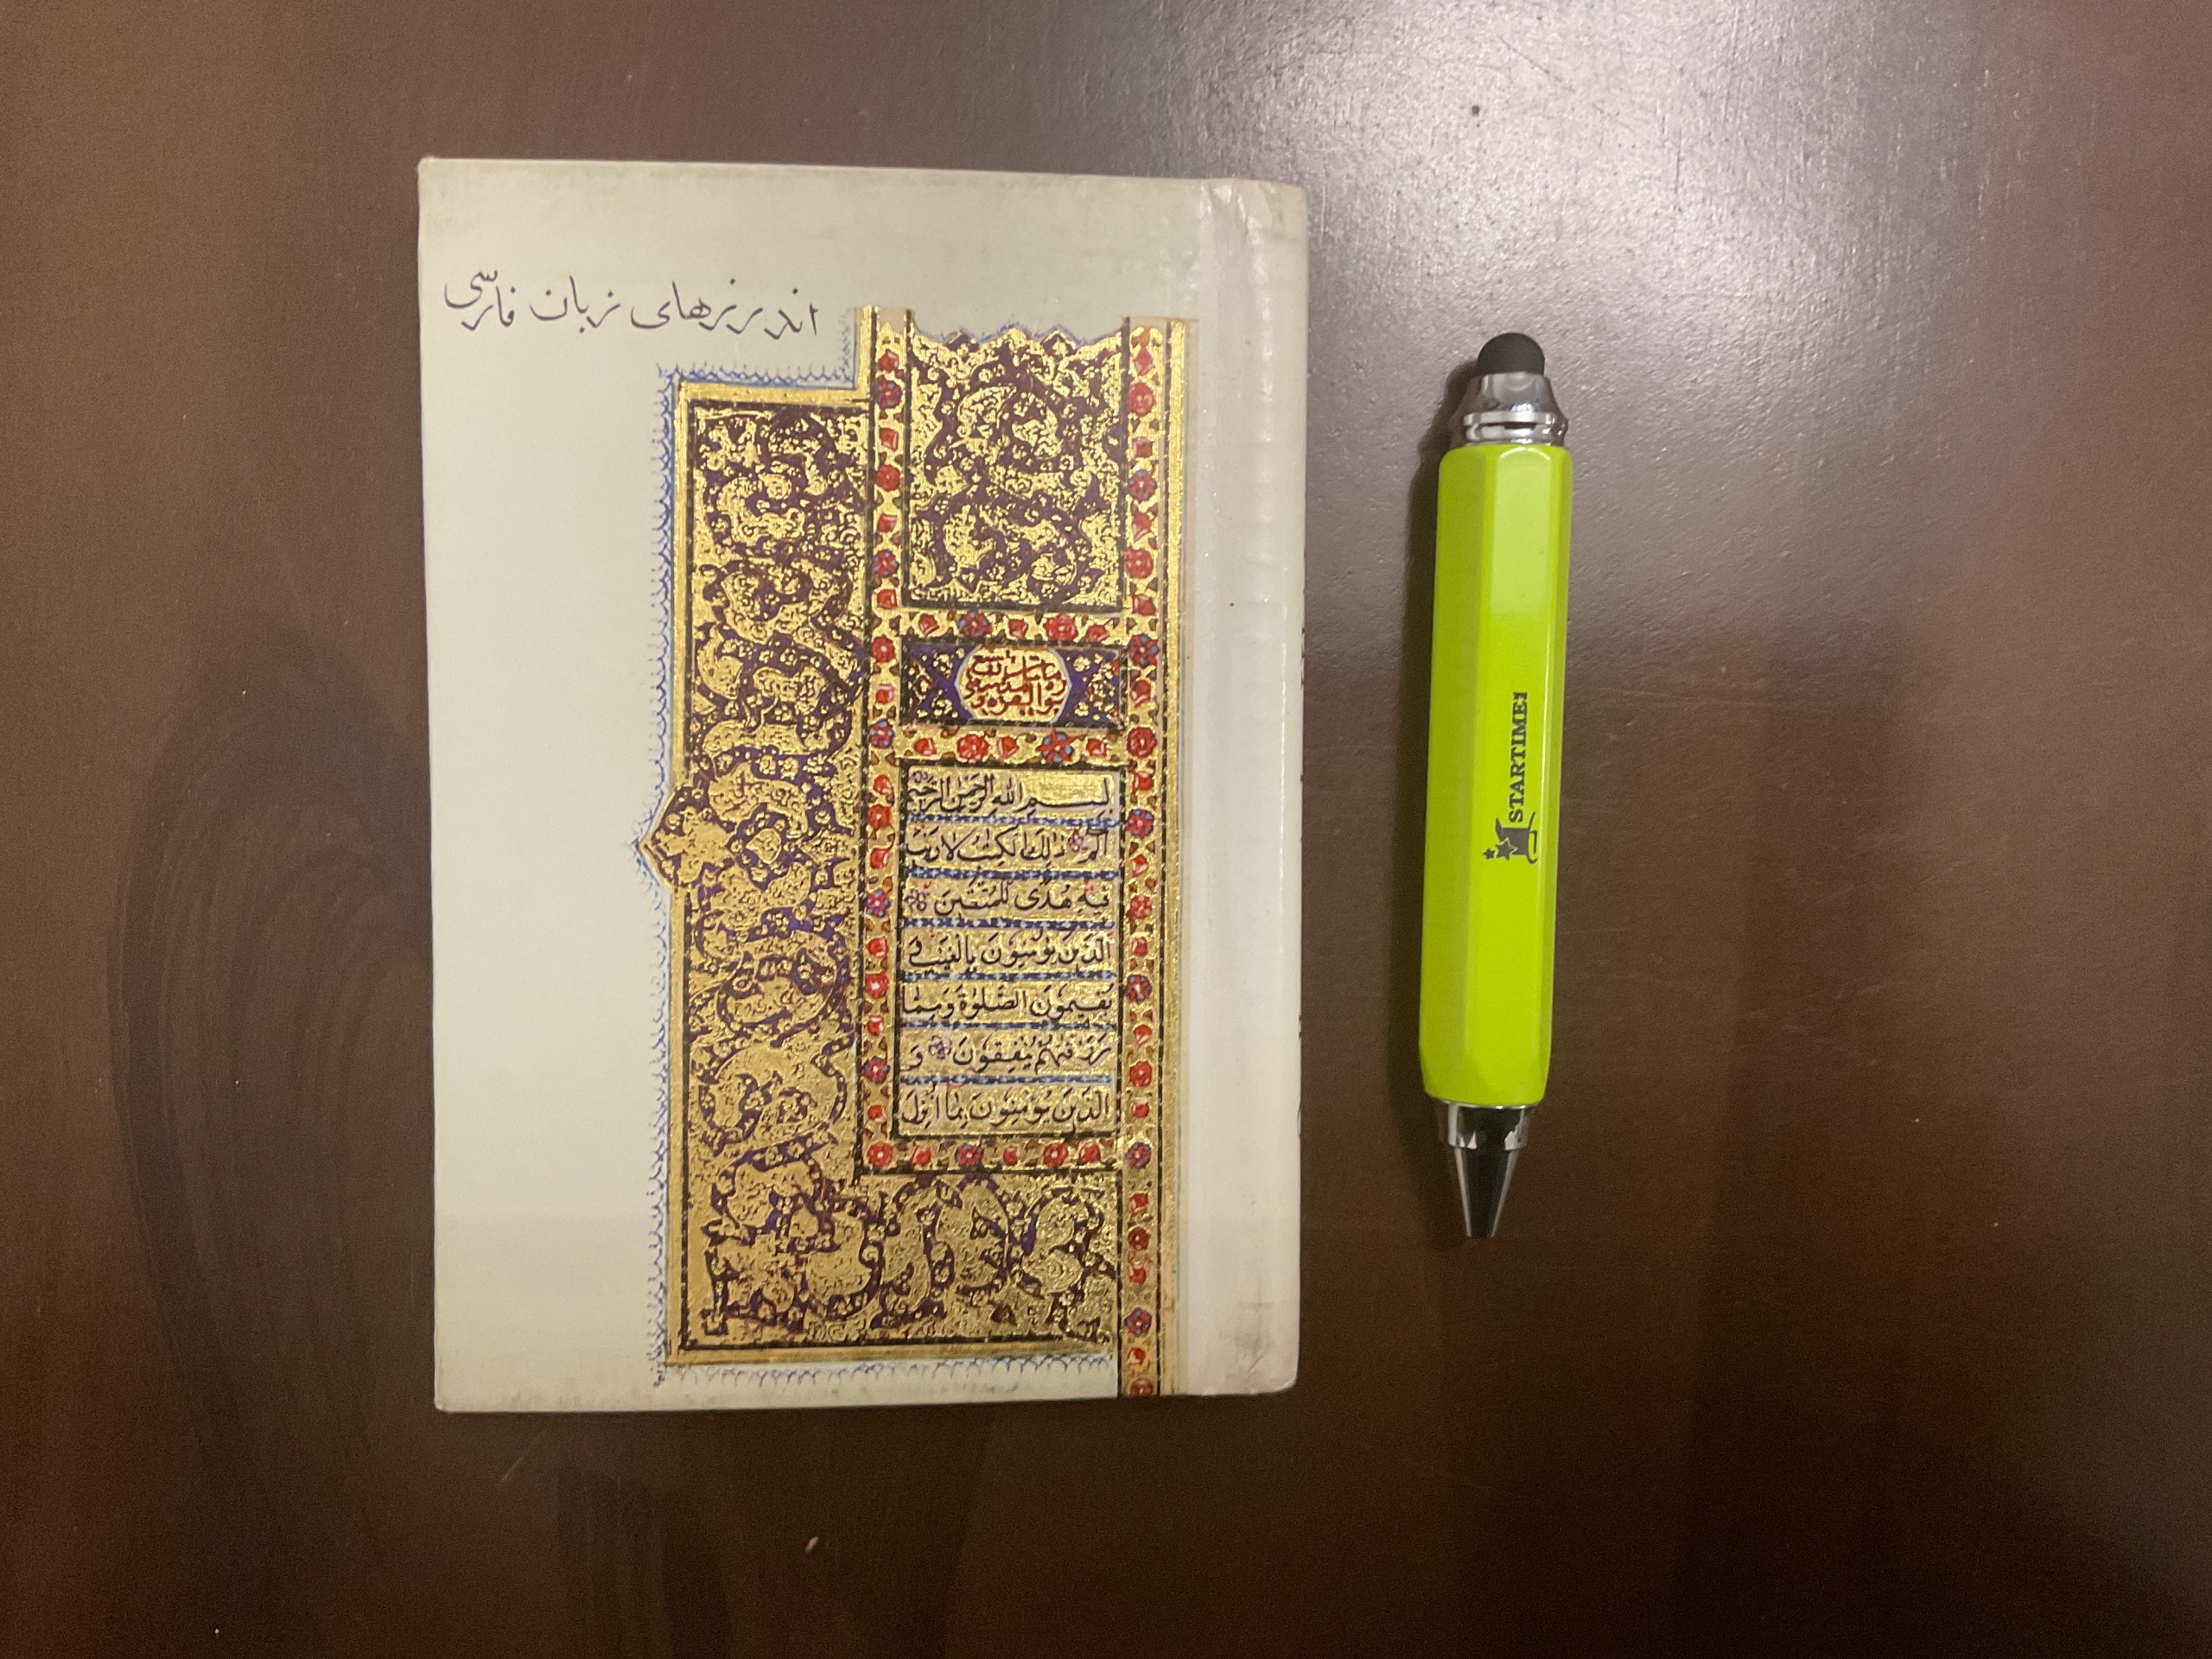 اندرزهای زبان فارسی
بسم الله الرحمن الرحیم
الم ذٰلِكَ الكِتٰبُ لَا رَیْبَ
فِیهِ هُدًى لِلْمُتَّقِینَ
الَّذِینَ یُؤْمِنُونَ بِالْغَیْبِ وَ
یُقِیمُونَ الصَّلٰوةَ وَمِمَّا
رَزَقْنٰهُمْ یُنْفِقُونَ وَ
الَّذِینَ یُؤْمِنُونَ بِمَا اُنْزِلَ
STARTIME!